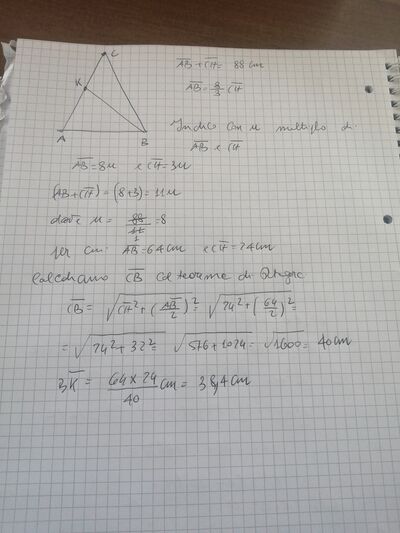 C
K
A B
AB + CH = 88 cm
AB = 8/3 CH
Indico con u multiplo di
AB e CH
AB = 8u e CH = 3u
(AB + CH) = (8+3) = 11u
dove u = 88/11 = 8
1
per cui AB = 64 cm e CH = 24 cm
Calcoliamo CB col teorema di
CB = √CH² + (AB/2)² = √24² + (64/2)² =
= √24² + 32² = √576 + 1024 = √1600 = 40 cm
BK = 64 x 24/40 cm = 38,4 cm